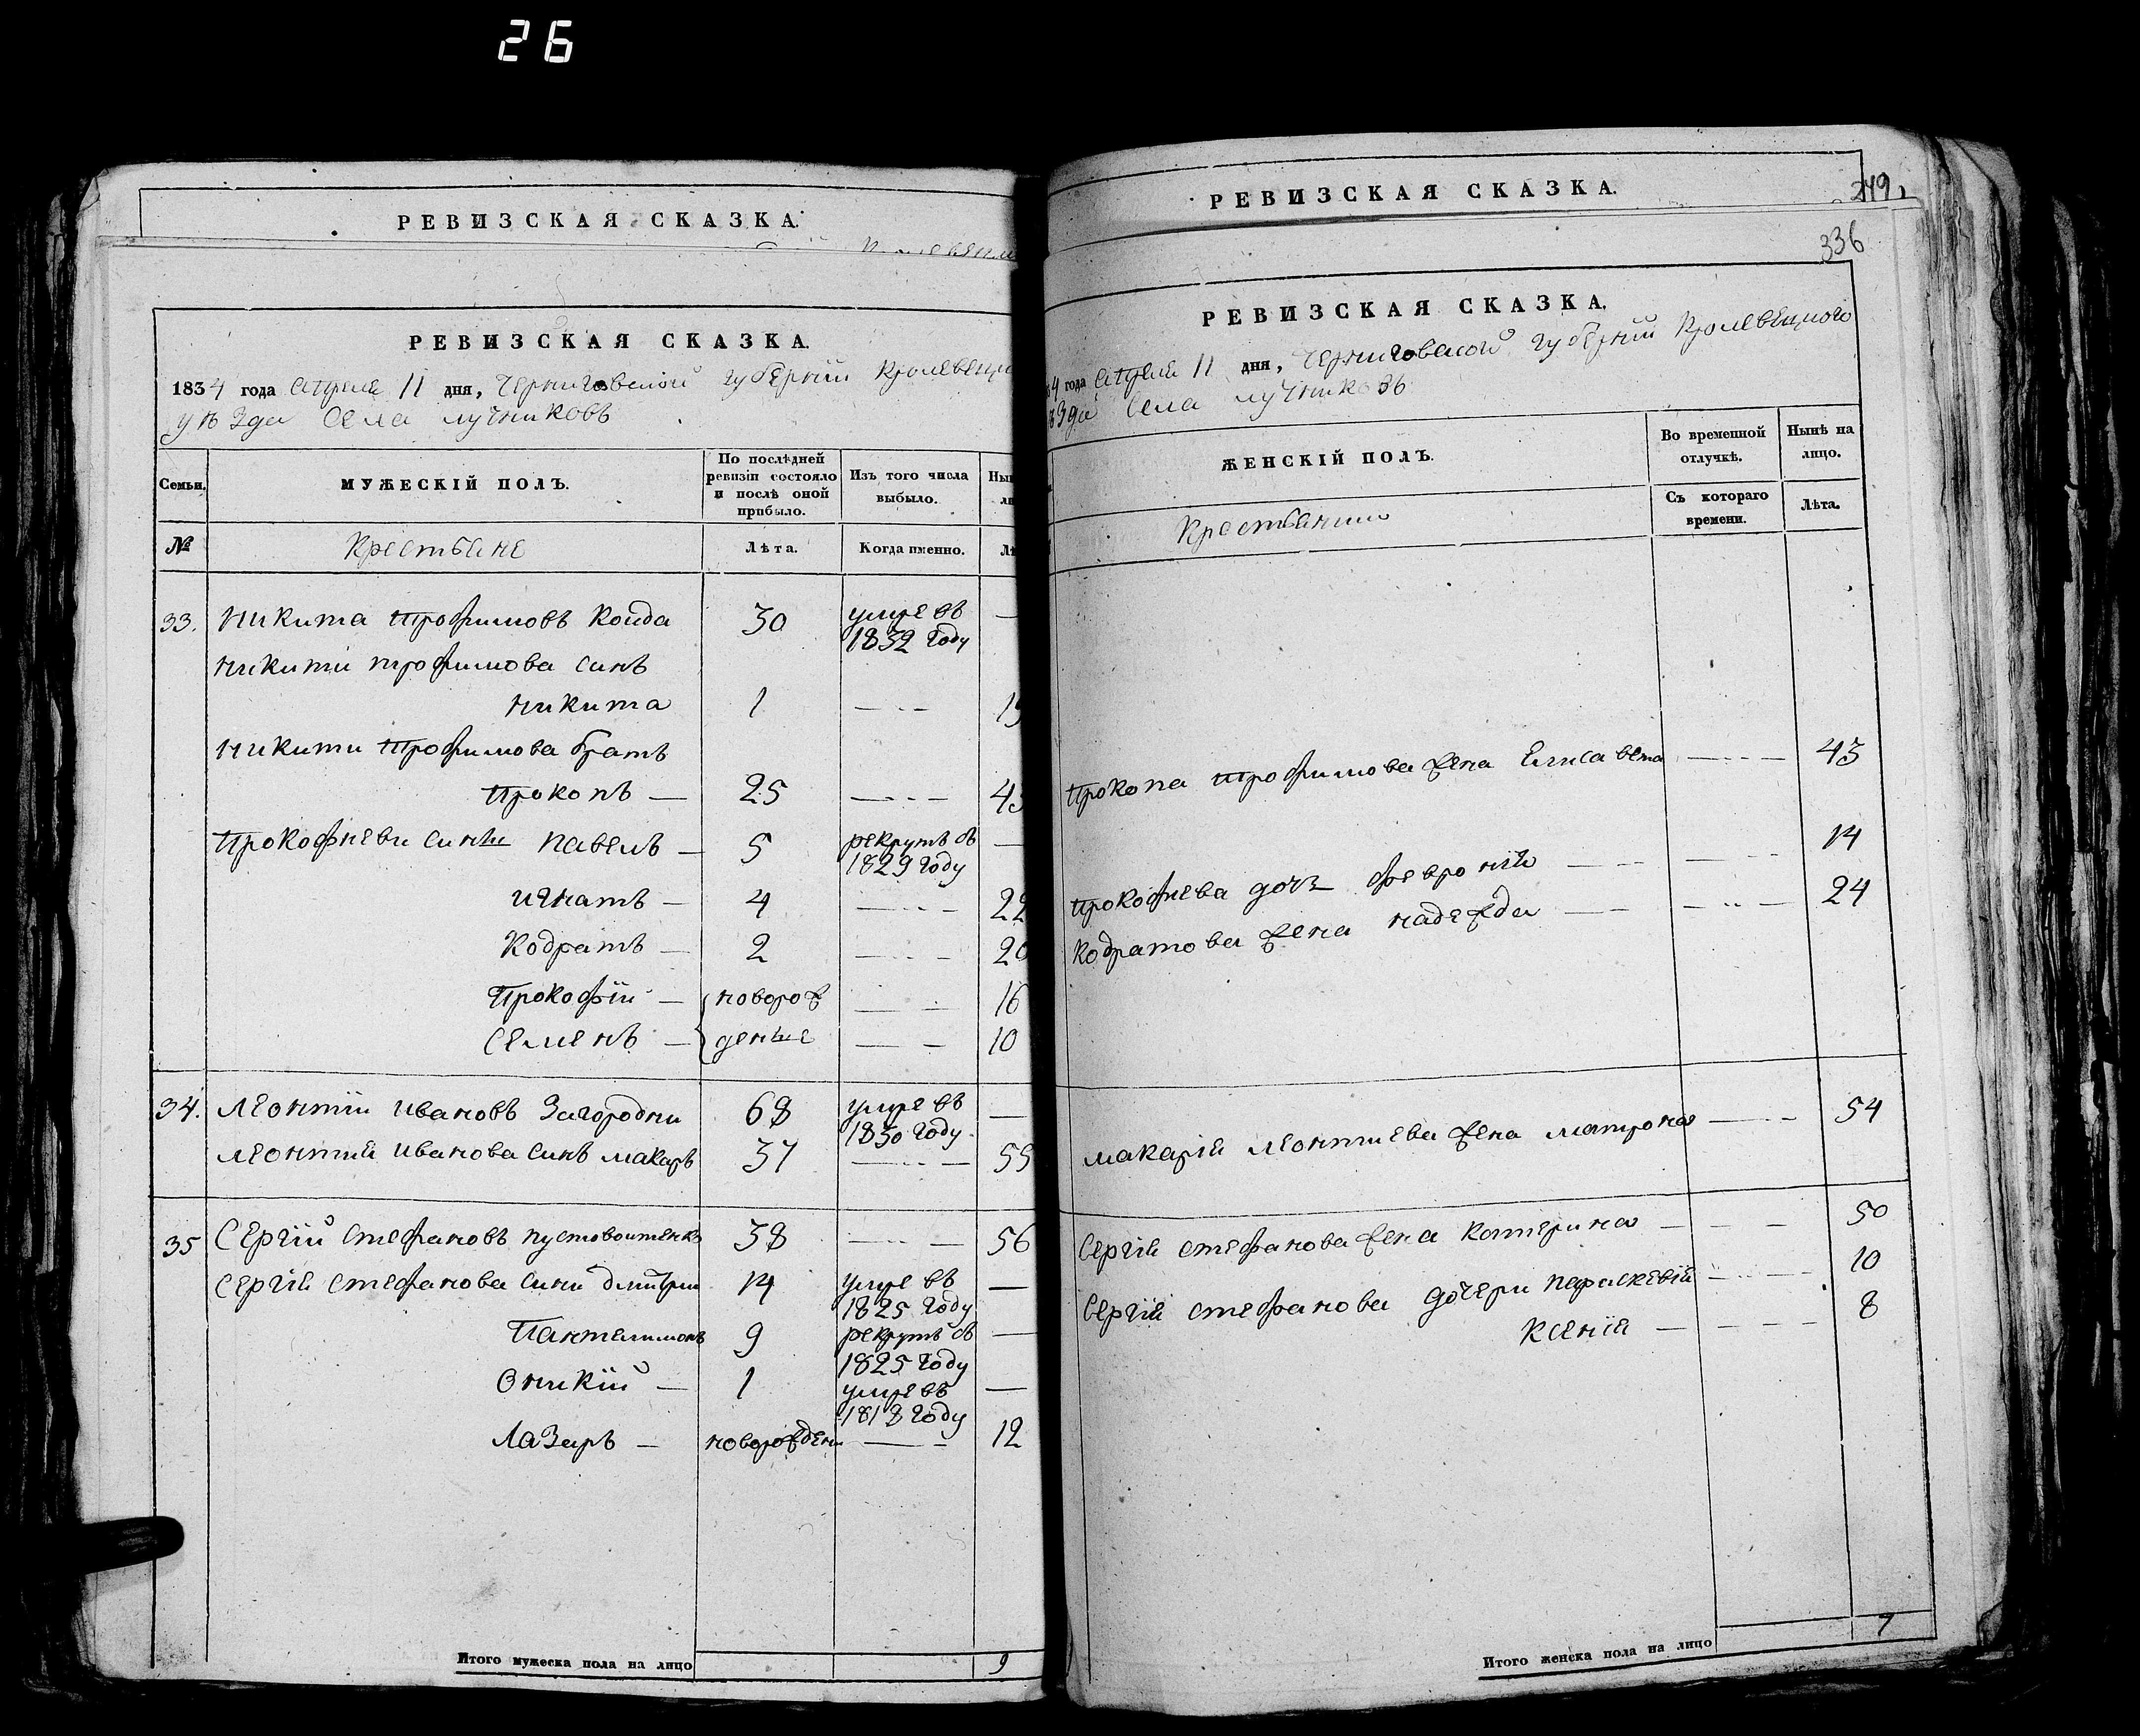 26
РЕВИЗСКАЯ СКАЗКА.
РЕВИЗСКАЯ СКАЗКА.
1834 года Апреля 11 дня, Черниговской губернїи Кролевец
уѣзда Села Лучниковъ
Семьи.
МУЖЕСКІЙ ПОЛЪ.
По послѣдней ревизіи состояло и послѣ оной прибыло.
Изъ того числа выбыло.
№
Крестьяне
Лѣта.
Когда именно.
33. Никита Трофимовъ Коида 30 умре въ 1832 году —
Никити трофимова синъ
Никита 1 — 19
Никити Трофимова братъ
Прокопъ — 25 — 43
Прокофиеви сини Павелъ — 5 рекрутъ въ 1829 году —
Игнатъ — 4 — 22
Кодратъ — 2 — 20
Прокофїи — новорож — 16
Семенъ — дение — 10
34. Леонтїи Ивановъ Загородни 68 умре въ 1830 году —
Леонтия Иванова синъ Макаръ 37 — 55
35 Сергїй Стефановъ Пустовоитенко 38 — 56
Сергїя Стефанова сини Дмитрии 14 умре въ 1825 году —
Пантелимонъ 9 рекрутъ въ 1825 году —
Оникїй — 1 умре въ 1818 году —
Лазаръ — новорожден — 12
Итого мужеска пола на лицо 9
РЕВИЗСКАЯ СКАЗКА.
249
336
РЕВИЗСКАЯ СКАЗКА.
4 года Апреля 11 дня, Черниговской губернїи Кролевецкого
ѣзда Села Лучниковъ
ЖЕНСКІЙ ПОЛЪ.
Во временной отлучкѣ.
Нынѣ на лицо.
Крестьянки
Съ котораго времени.
Лѣта.
Прокопа Трофимова жена Елисавета — 43
Прокофиева дочь Февронїя — 14
Кодратова жена Надежда — 24
Макарїя Леонтиева жена Матрона — 54
Сергїя Стефанова жена Катерина — 50
Сергїя Стефанова дочери Параскевїя — 10
Ксенїя — 8
Итого женска пола на лицо 7